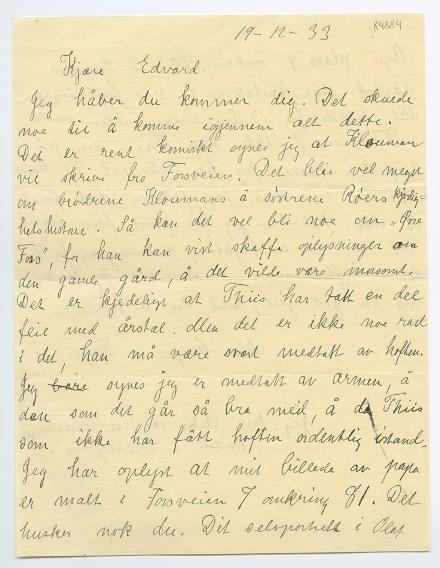 19-12-33
K4884
Kjære Edvard.
Jeg håber du kommer dig. Det skulde
noe til å komme igjennem alt dette.
Det er rent komiskt synes jeg at Klouman
vil skrive fra Forsveien. Det blir vel meget
om brødrene Kloumans å søstrene Røers kjærlig-
hetshistorie. Så kan det vel bli noe om „Øvre
Foss", for han kan vist skaffe oplysninger om
den gamle gård, å det vilde være morsomt.
Det er kjedeligt at Thiis har tatt en del
feie med årstal. Men det er ikke noe rad
i det, han må være svært medtatt av hoften.
Jeg bare synes jeg er medtatt av armen, å
den som det går så bra med, å da Thiis
som ikke har fått hoften ordentlig istand.
Jeg har oplyst at mit billede av papa
er malt i Forsveien 7 omkring 81. Det
husker nok du. Dit selvportrett i Olaf